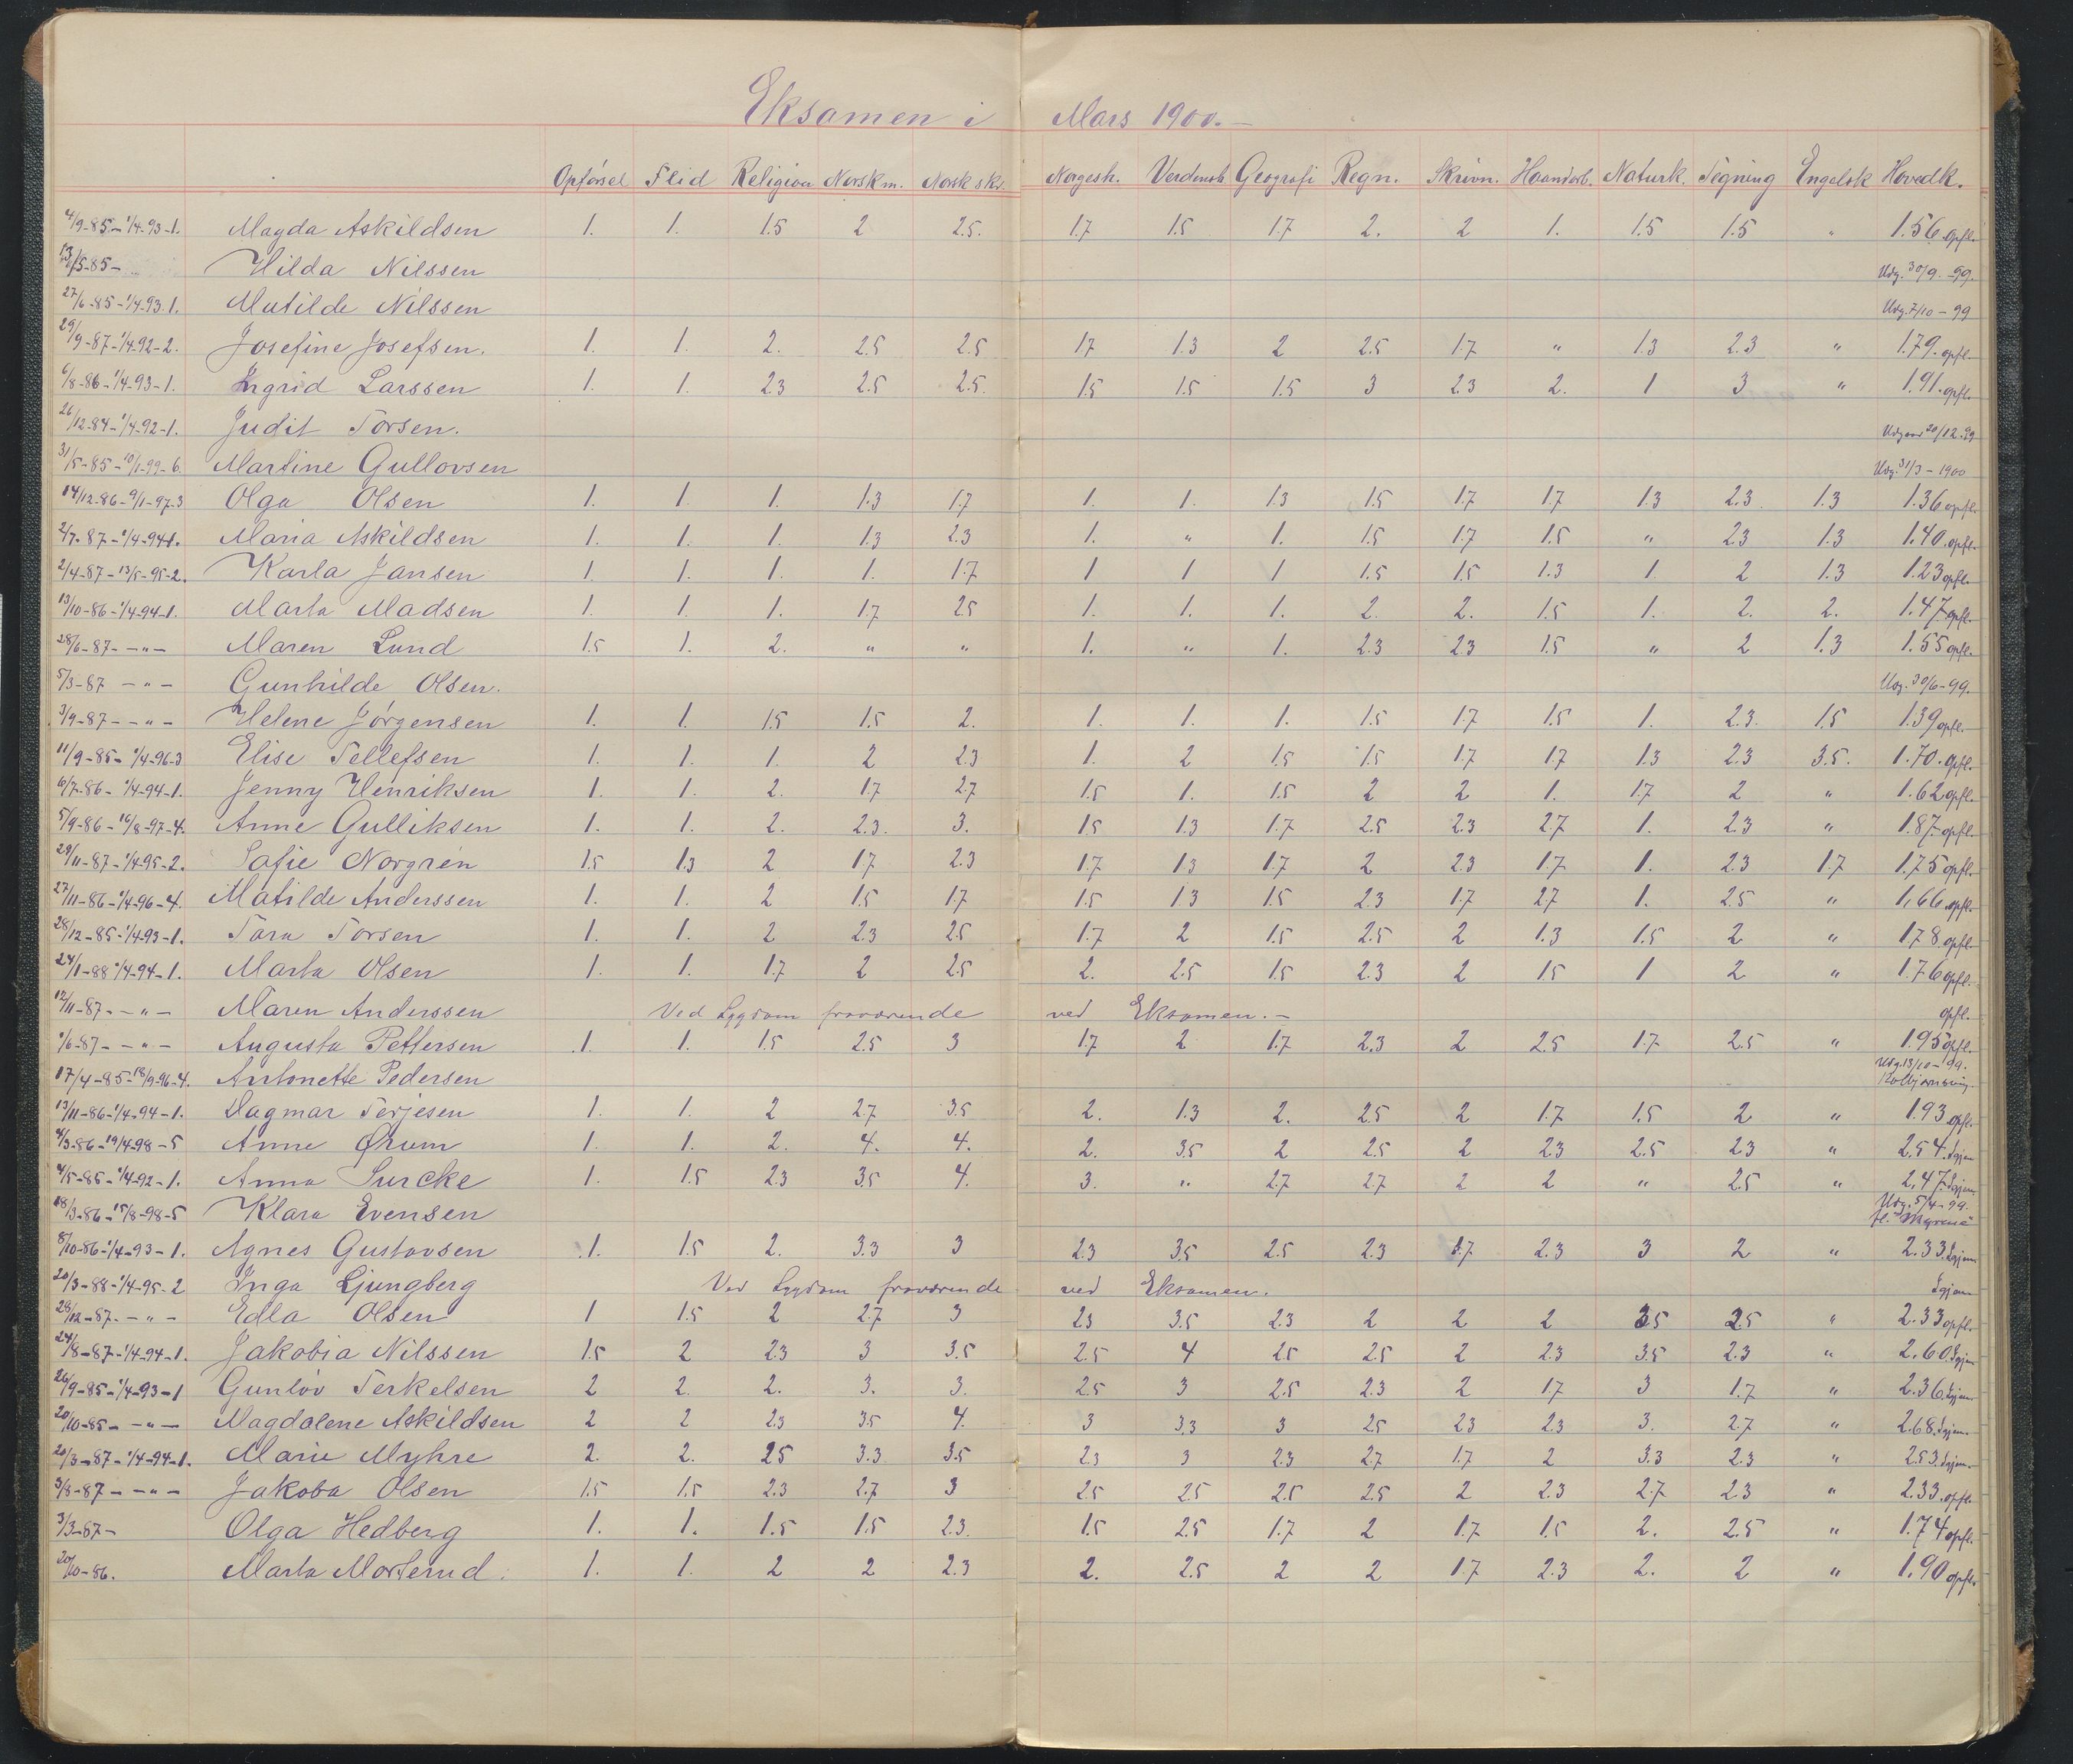 Eksamen i Mars 1900.—
Opførsel Flid Religion Norsk m. Norsk skr. Norgesh. Verdensh. Geografi Regn. Skrivn. Haandarb. Naturk. Tegning Engelsk Hovedk.
4/9-85-1/4-93-1. Magda Askildsen 1. 1. 1.5 2 2.5. 1.7 1.5 1.7 2. 2 1. 1.5 1.5 " 1.56 opfl.
/5-85- Hilda Nilssen Udg. 30/9-99.
27/6-85-1/4-93.1. Matilde Nilssen Udg. 7/10-99
29/9-87-1/4-92-2. Josefine Josefsen. 1. 1. 2. 2.5 2.5 1.7 1.3 2 2.5 1.7 " 1.3 2.3 " 1.79. opfl.
6/8-86-1/4-93-1. Ingrid Larssen 1. 1. 2.3 2.5 2.5. 1.5 1.5 1.5 3 2.3 2. 1 3 " 1.91. opfl.
26/12-84-1/4-92-1. Judit Torsen. Udgaar 20/12-99
31/5-85-10/1-99-6. Martine Gullovsen Udg. 31/3-1900
14/12-86-9/1-97-3 Olga Olsen 1. 1. 1. 1.3 1.7 1. 1. 1.3 1.5 1.7 1.7 1.3 2.3 1.3 1.36 opfl.
2/7-87-1/4-94-1. Maria Askildsen 1. 1. 1. 1.3 2.3 1. " 1. 1.5 1.7 1.5 " 2.3 1.3 1.40. opfl.
2/4-87-13/5-95-2. Karla Jansen 1. 1. 1. 1. 1.7 1 1 1 1.5 1.5 1.3 1. 2 1.3 1.23 opfl.
13/10-86-1/4-94-1. Marta Madsen 1. 1. 1. 1.7 2.5 1. 1. 1. 2. 2. 1.5 1. 2. 2. 1.47 opfl.
28/6-87- -"- Maren Lund 1.5 1. 2. " " 1. " 1. 2.3 2.3 1.5 " 2 1.3 1.55 opfl.
5/3-87 -"- Gunhilde Olsen. Udg. 30/6-99.
3/9-87- -"- Helene Jørgensen 1. 1. 1.5 1.5 2. 1. 1. 1. 1.5 1.7 1.5 1. 2.3. 1.5 1.39 opfl.
11/9-85-1/4-96-3 Elise Tellefsen 1. 1. 1. 2 2.3 1. 2 1.5 1.5 1.7 1.7 1.3 2.3 3.5. 1.70. opfl.
6/7-86-1/4-94-1. Jenny Henriksen 1. 1. 2. 1.7 2.7 1.5 1. 1.5 2 2 1. 1.7 2 " 1.62 opfl.
5/9-86-16/8-97-4. Anne Gulliksen 1. 1. 2. 2.3. 3. 1.5 1.3 1.7 2.5 2.3 2.7 1. 2.3 " 1.87 opfl.
29/11-87-1/4-95-2. Sofie Norgrén 1.5 1.3 2 1.7 2.3 1.7 1.3 1.7 2 2.3 1.7 1. 2.3 1.7 1.75 opfl.
27/11-86-1/4-96-4. Matilde Anderssen 1. 1. 2 1.5 1.7 1.5 1.3 1.5 2.3 1.7 2.7 1. 2.5 " 1.66 opfl.
28/12-85-1/4-93-1. Tora Torsen 1. 1. 2 2.3 2.5 1.7 2 1.5 2.5 2 1.3 1.5 2 " 1.78 opfl.
24/1-88 1/4-94-1. Marta Olsen 1. 1. 1.7 2 2.5 2. 2.5 1.5 2.3 2 1.5 1 2 " 1.76 opfl.
12/11-87- -"- Maren Anderssen Ved Sygdom fraværende ved Eksamen.- opfl.
1/6-87- -"- Augusta Pettersen 1. 1. 1.5 2.5 3 1.7 2 1.7 2.3 2 2.5 1.7 2.5 " 1.95 opfl.
17/4-85-18/9-96-4. Antonette Pedersen Udg. 13/10-99.
13/11-86-1/4-94-1. Dagmar Terjesen 1. 1. 2 2.7 3.5 2. 1.3 2. 2.5 2 1.7 1.5 2 " 1.93 opfl.
4/3-86-19/4-98-5 Anne Ørum 1. 1. 2. 4. 4. 2. 3.5 2 2.5 2 2.3 2.5 2.3 " 2.54. Igjen
4/5-85-1/4-92-1. Anna Surcke 1. 1.5 2.3 3.5 4. 3. " 2.7 2.7 2 2 " 2.5 " 2.47. Igjen
18/3-86-15/8-98-5 Klara Evensen Udg. 5/4-99. fl. Myrene
8/10-86-1/4-93-1. Agnes Gustavsen 1. 1.5 2. 3.3 3 2.3 3.5 2.5 2.3 1.7 2.3 3 2 " 2.33. Igjen
20/3-88-1/4-95-2 Inga Ljungberg Ved Sygdom fraværende ved Eksamen. Igjen
28/12-87- -"- Edla Olsen 1 1.5 2 2.7 3 2.3 3.5 2.3 2 2 2 3.5 2.5 " 2.33 opfl.
24/8-87-1/4-94-1. Jakobia Nilssen 1.5 2 2.3 3 3.5 2.5 4 2.5 2.5 2 2.3 3.5 2.3 " 2.60. Igjen
26/9-85-1/4-93-1 Gunløv Terkelsen 2 2. 2. 3. 3. 2.5 3 2.5 2.3 2 1.7 3 1.7 " 2.36. Igjen
20/10-85- -"- Magdalene Askildsen 2 2 2.3 3.5 4. 3 3.3 3 2.5 2.3 2.3 3. 2.7 " 2.68. Igjen.
20/3-87-1/4-94-1. Marie Myhre 2. 2. 2.5 3.3 3.5 2.3 3 2.3 2.7 1.7 2 3.3 2.3 " 2.53. Igjen.
3/8-87- -"- Jakoba Olsen 1.5 1.5 2.3 2.7 3 2.5 2.5 2.5 2.5 2 2.3 2.7 2.3 " 2.33. opfl.
3/3-87- Olga Hedberg 1. 1. 1.5 1.5 2.3. 1.5 2.5 1.7 2 1.7 1.5 2. 2.5 " 1.74 opfl.
20/10-86. Marta Morterud. 1. 1. 2 2 2.3 2. 2.5 2 2 1.7 2.3 2. 2 " 1.90 opfl.